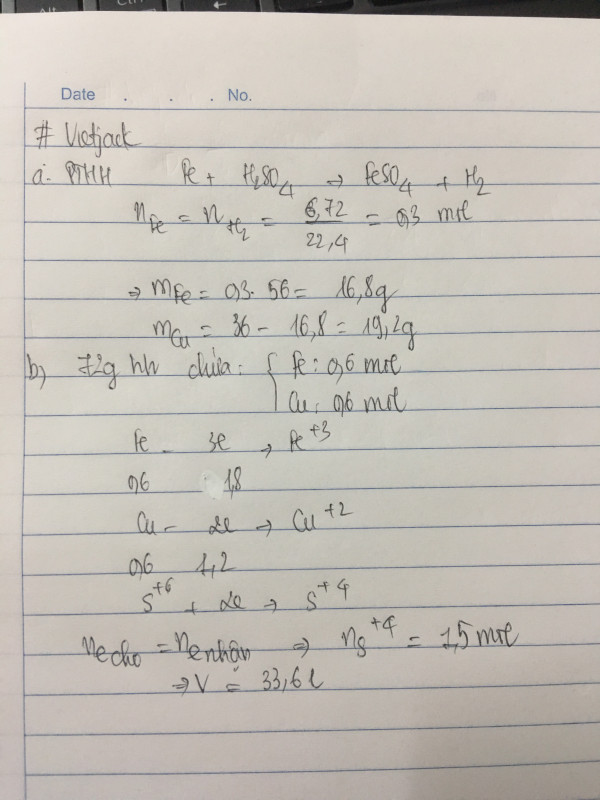 Date . . . No.
# Vietjack
a. PTHH Fe + H₂SO₄ → FeSO₄ + H₂
n_Fe = n_H₂ = 6,72/22,4 = 0,3 mol
⇒ m_Fe = 0,3. 56 = 16,8g
m_Cu = 36 - 16,8 = 19,2g
b) 72g hh chứa: { Fe: 0,6 mol
Cu: 0,6 mol
Fe - 3e → Fe⁺³
0,6 1,8
Cu - 2e → Cu⁺²
0,6 1,2
S⁺⁶ + 2e → S⁺⁴
n_e cho = n_e nhận ⇒ n_S⁺⁴ = 1,5 mol
⇒ V = 33,6 l